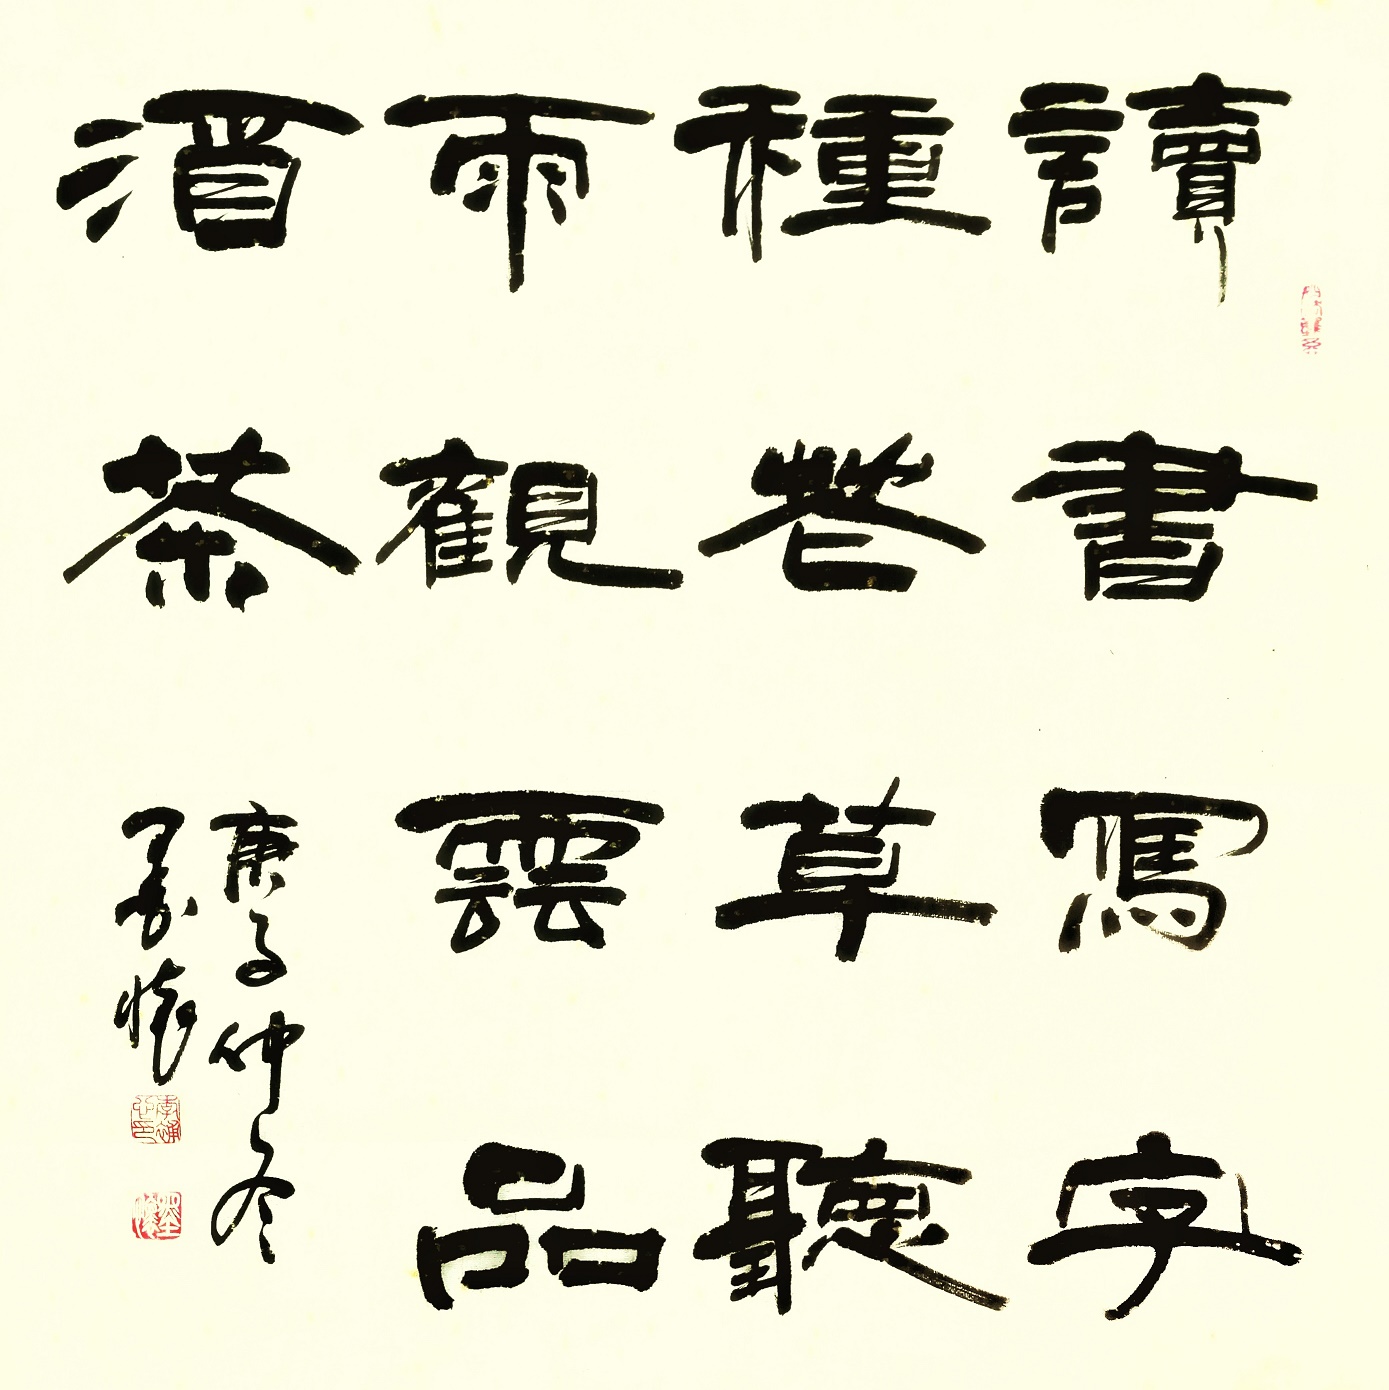 讀書寫字
種花草聽
雨觀雲品
酒茶
庚子仲冬
墨懷